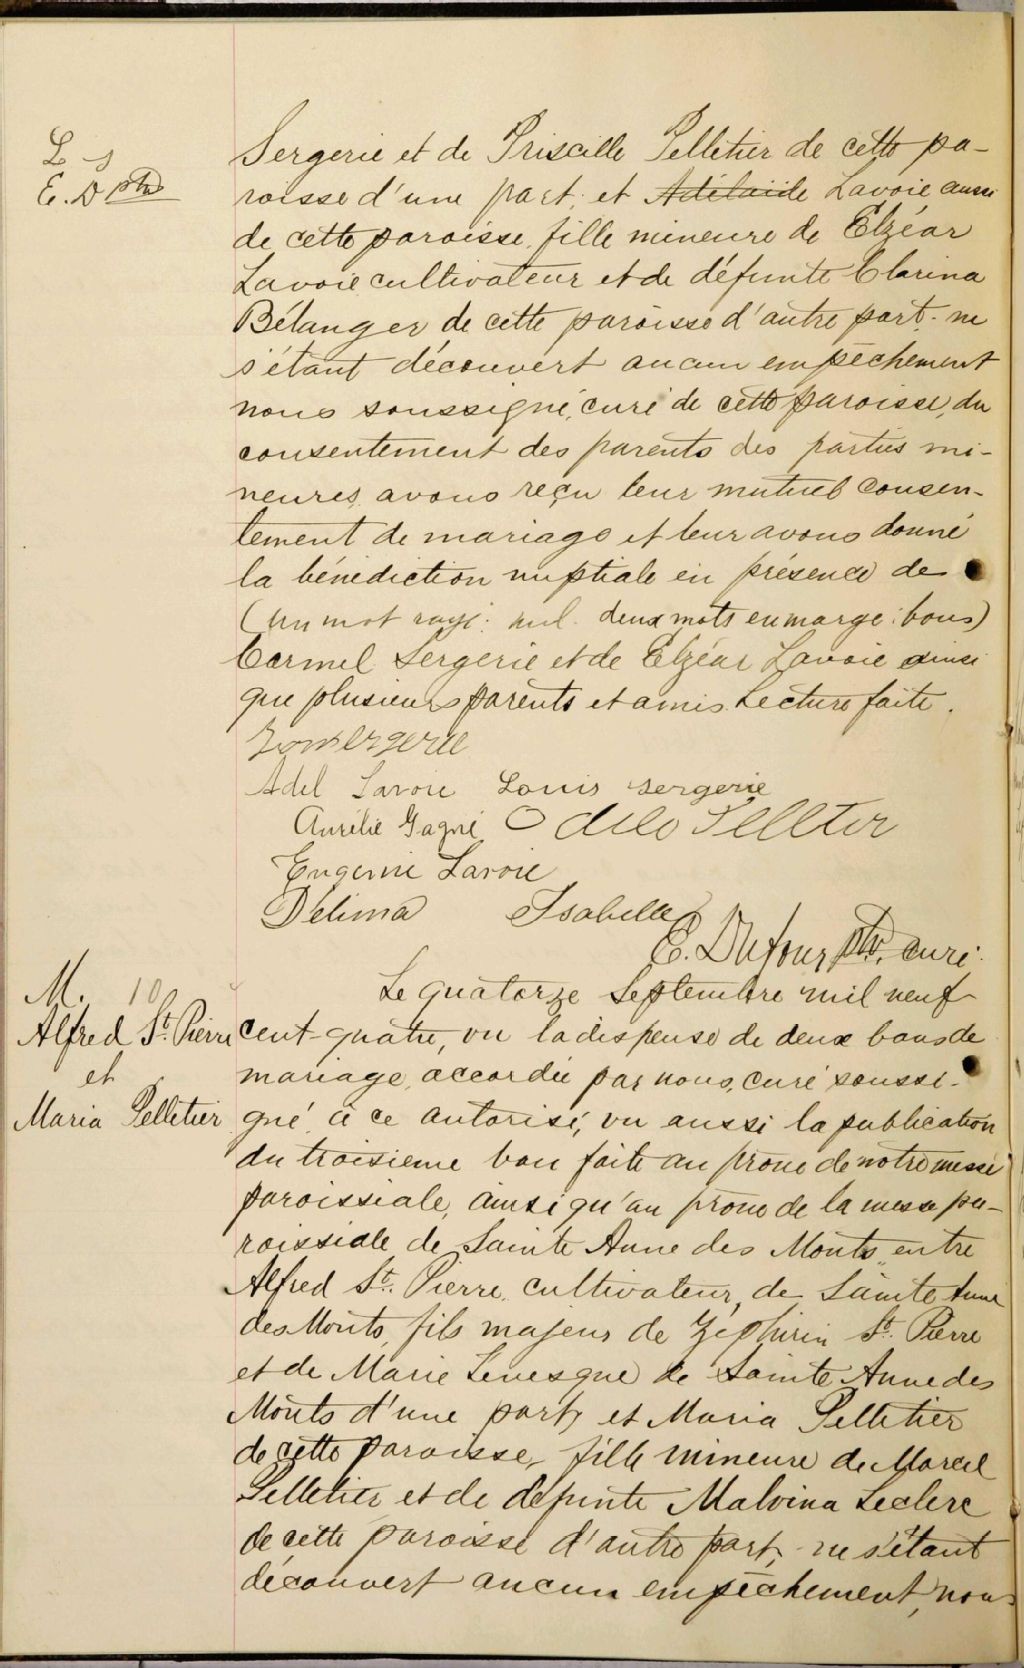 L s
E. D ptre
Sergerie et de Priscille Pelletier de cette pa-
roisse d'une part, et Adélaïde Lavoie, aussi
de cette paroisse, fille mineure de Elzéar
Lavoie cultivateur et de défunte Clarina
Bélanger de cette paroisse d'autre part. ne
s'étant découvert aucun empêchement
nous soussigné, curé de cette paroisse, du
consentement des parents des parties mi-
neures, avons reçu leur mutuel consen-
tement de mariage et leur avons donné
la bénédiction nuptiale en présence de
(un mot rayé: nul. deux mots en marge: bons)
Carmel Sergerie et de Elzéar Lavoie ainsi
que plusieurs parents et amis. Lecture faite.
Adel Lavoie Louis Sergerie
Aurélie Gagné Odile Pelletier
Eugenie Lavoie
Délima Isabelle
E. Dufour ptre, curé.
M. 10
Alfred St. Pierre
et
Maria Pelletier
Le quatorze Septembre mil neuf
cent-quatre, vu la dispense de deux bans de
mariage, accordée par nous, curé soussi-
gné à ce autorisé, vu aussi la publication
du troisieme ban faite au prone de notre messe
paroissiale, ainsi qu'au prône de la messe pa-
roissiale de Sainte Anne des Monts, entre
Alfred St. Pierre, cultivateur, de Sainte Anne
des Monts, fils majeur de Zéphirin St. Pierre
et de Marie Levesque de Sainte Anne des
Monts d'une part, et Maria Pelletier
de cette paroisse, fille mineure de Marcel
Pelletier et de défunte Malvina Leclerc
de cette paroisse d'autre part, ne s'étant
découvert aucun empêchement, nous